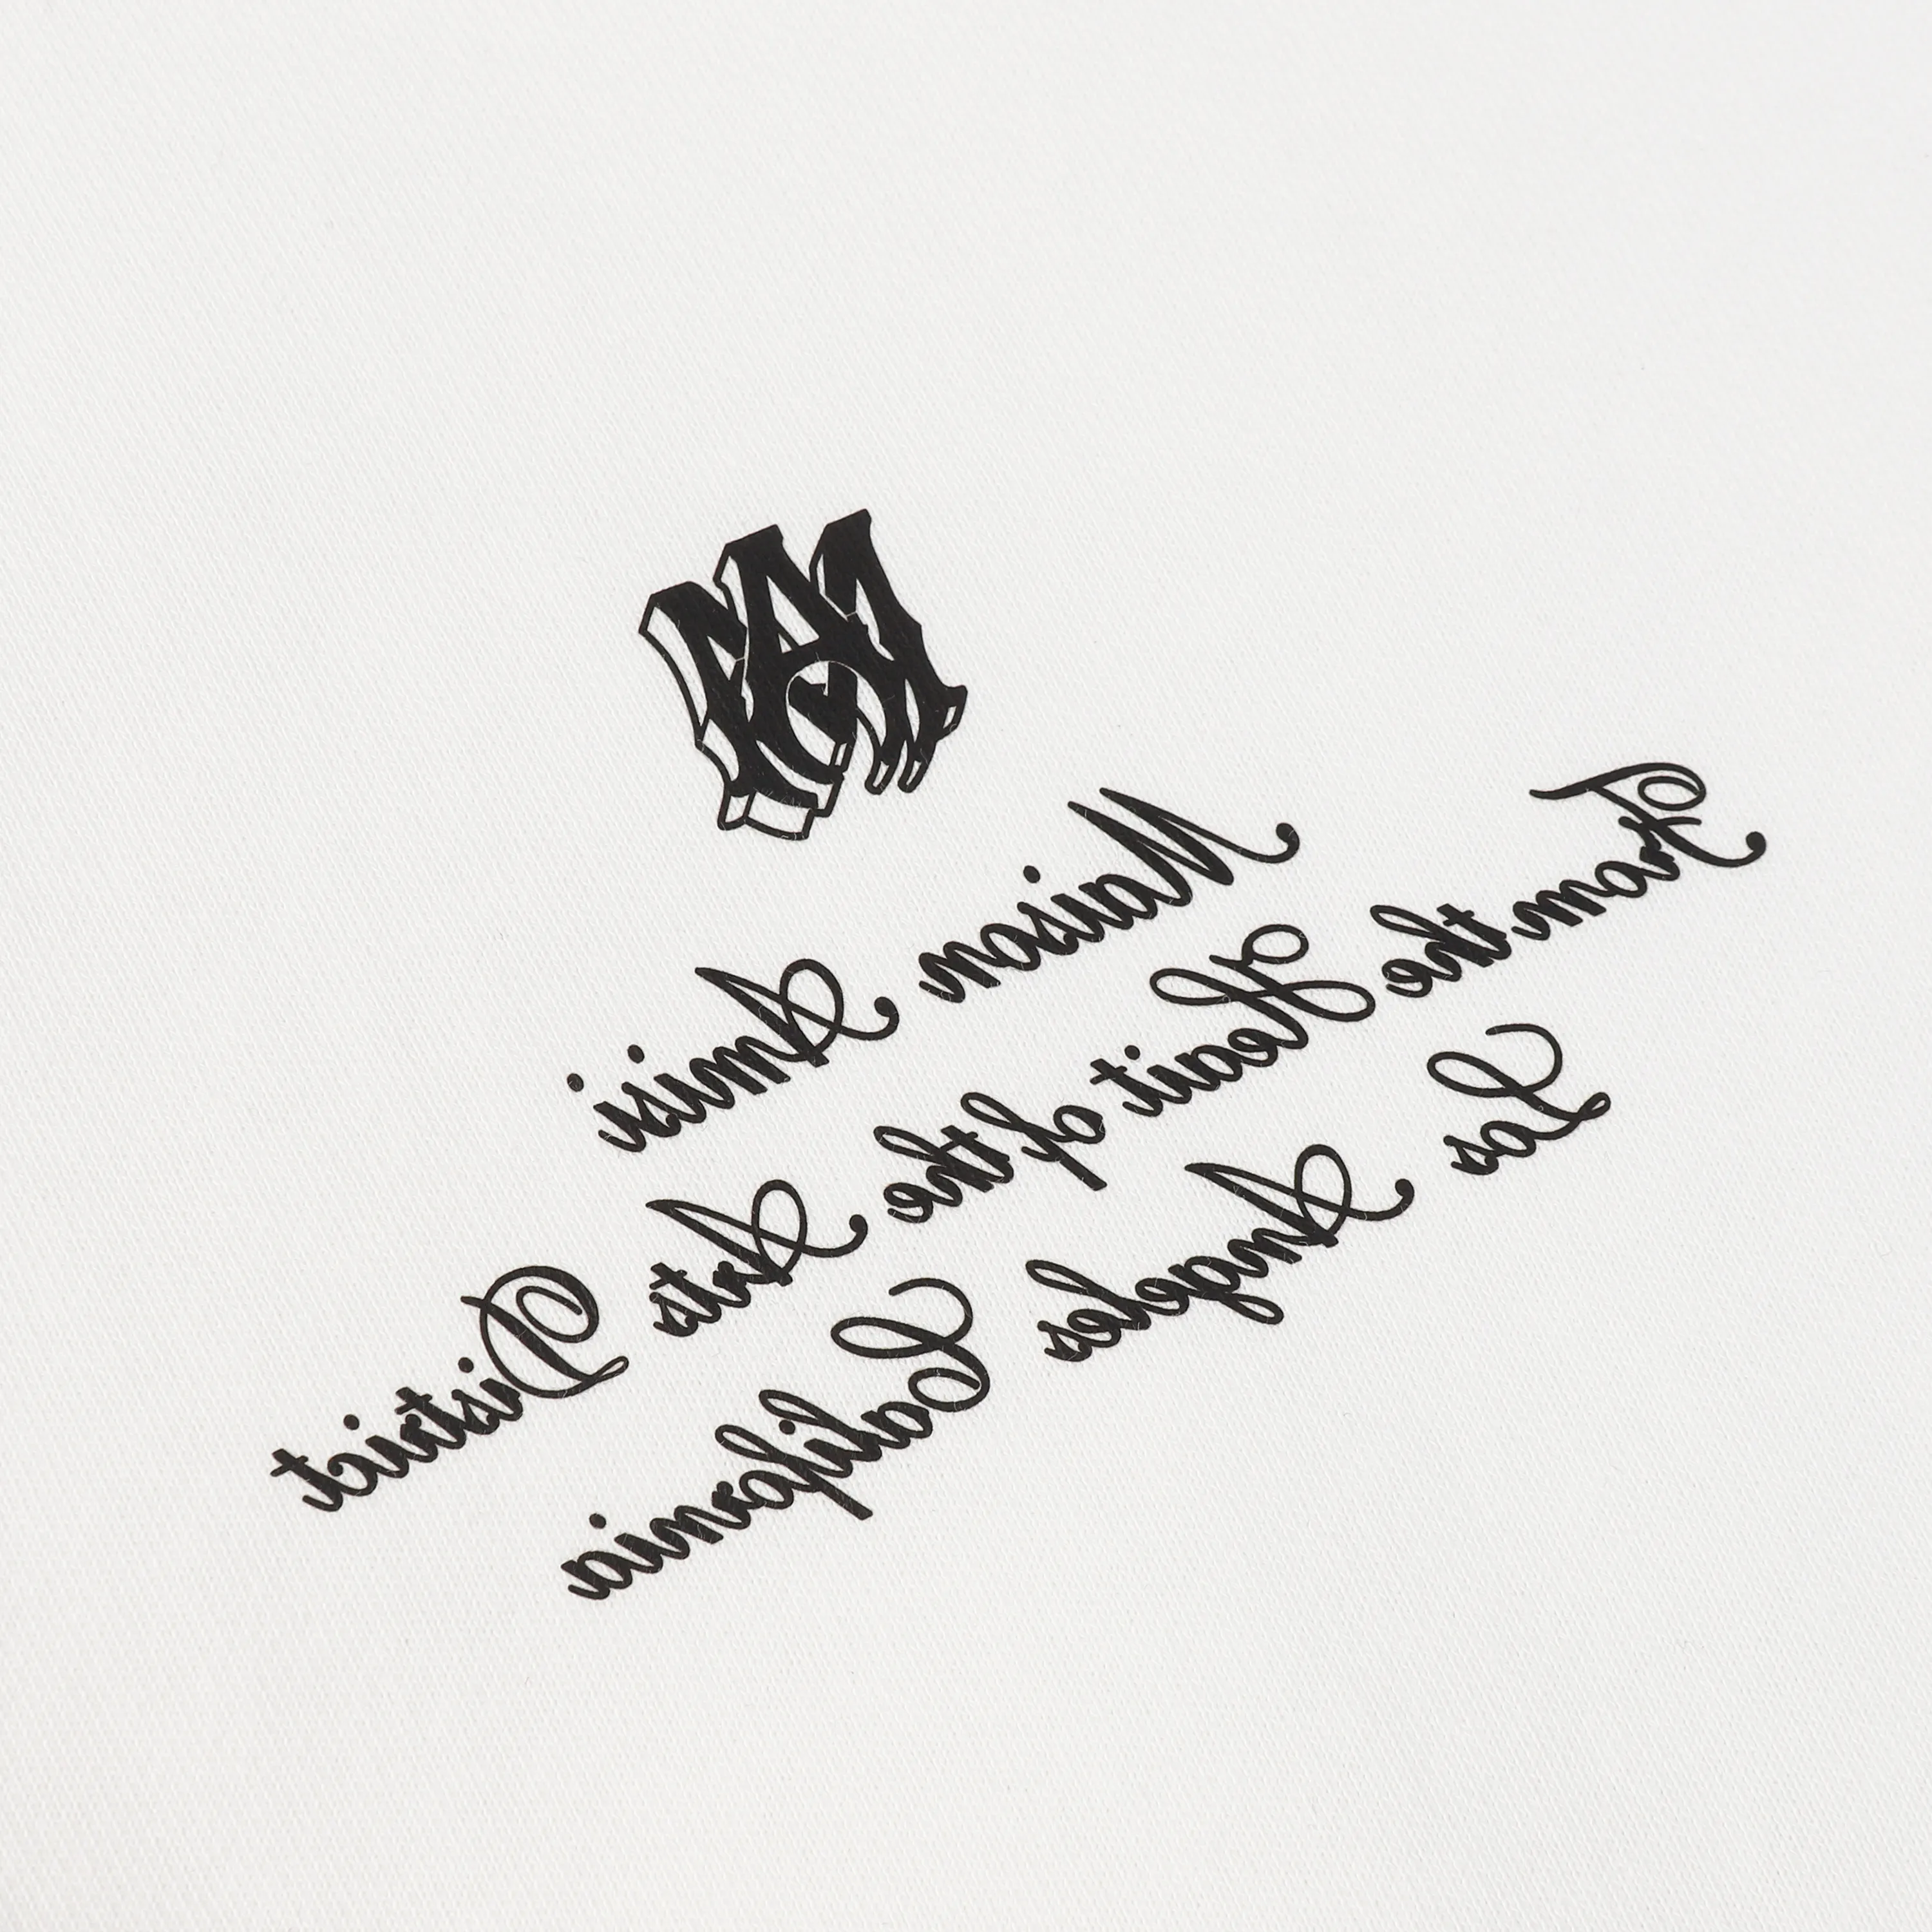 MA
Maison Amiri
From the Heart of the Arts District
Los Angeles California